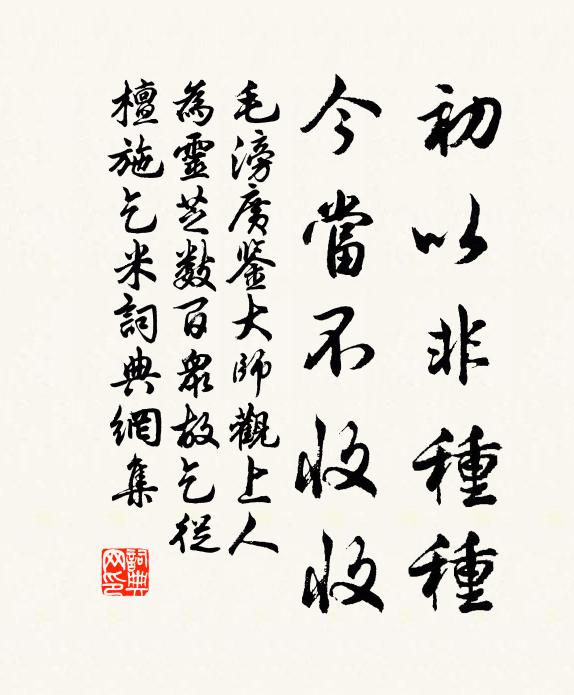 初以非種種
今當不收收
毛滂廣鉴大師觀上人
為靈芝數百眾故乞從
檀施乞米詞典網集
詞典網印